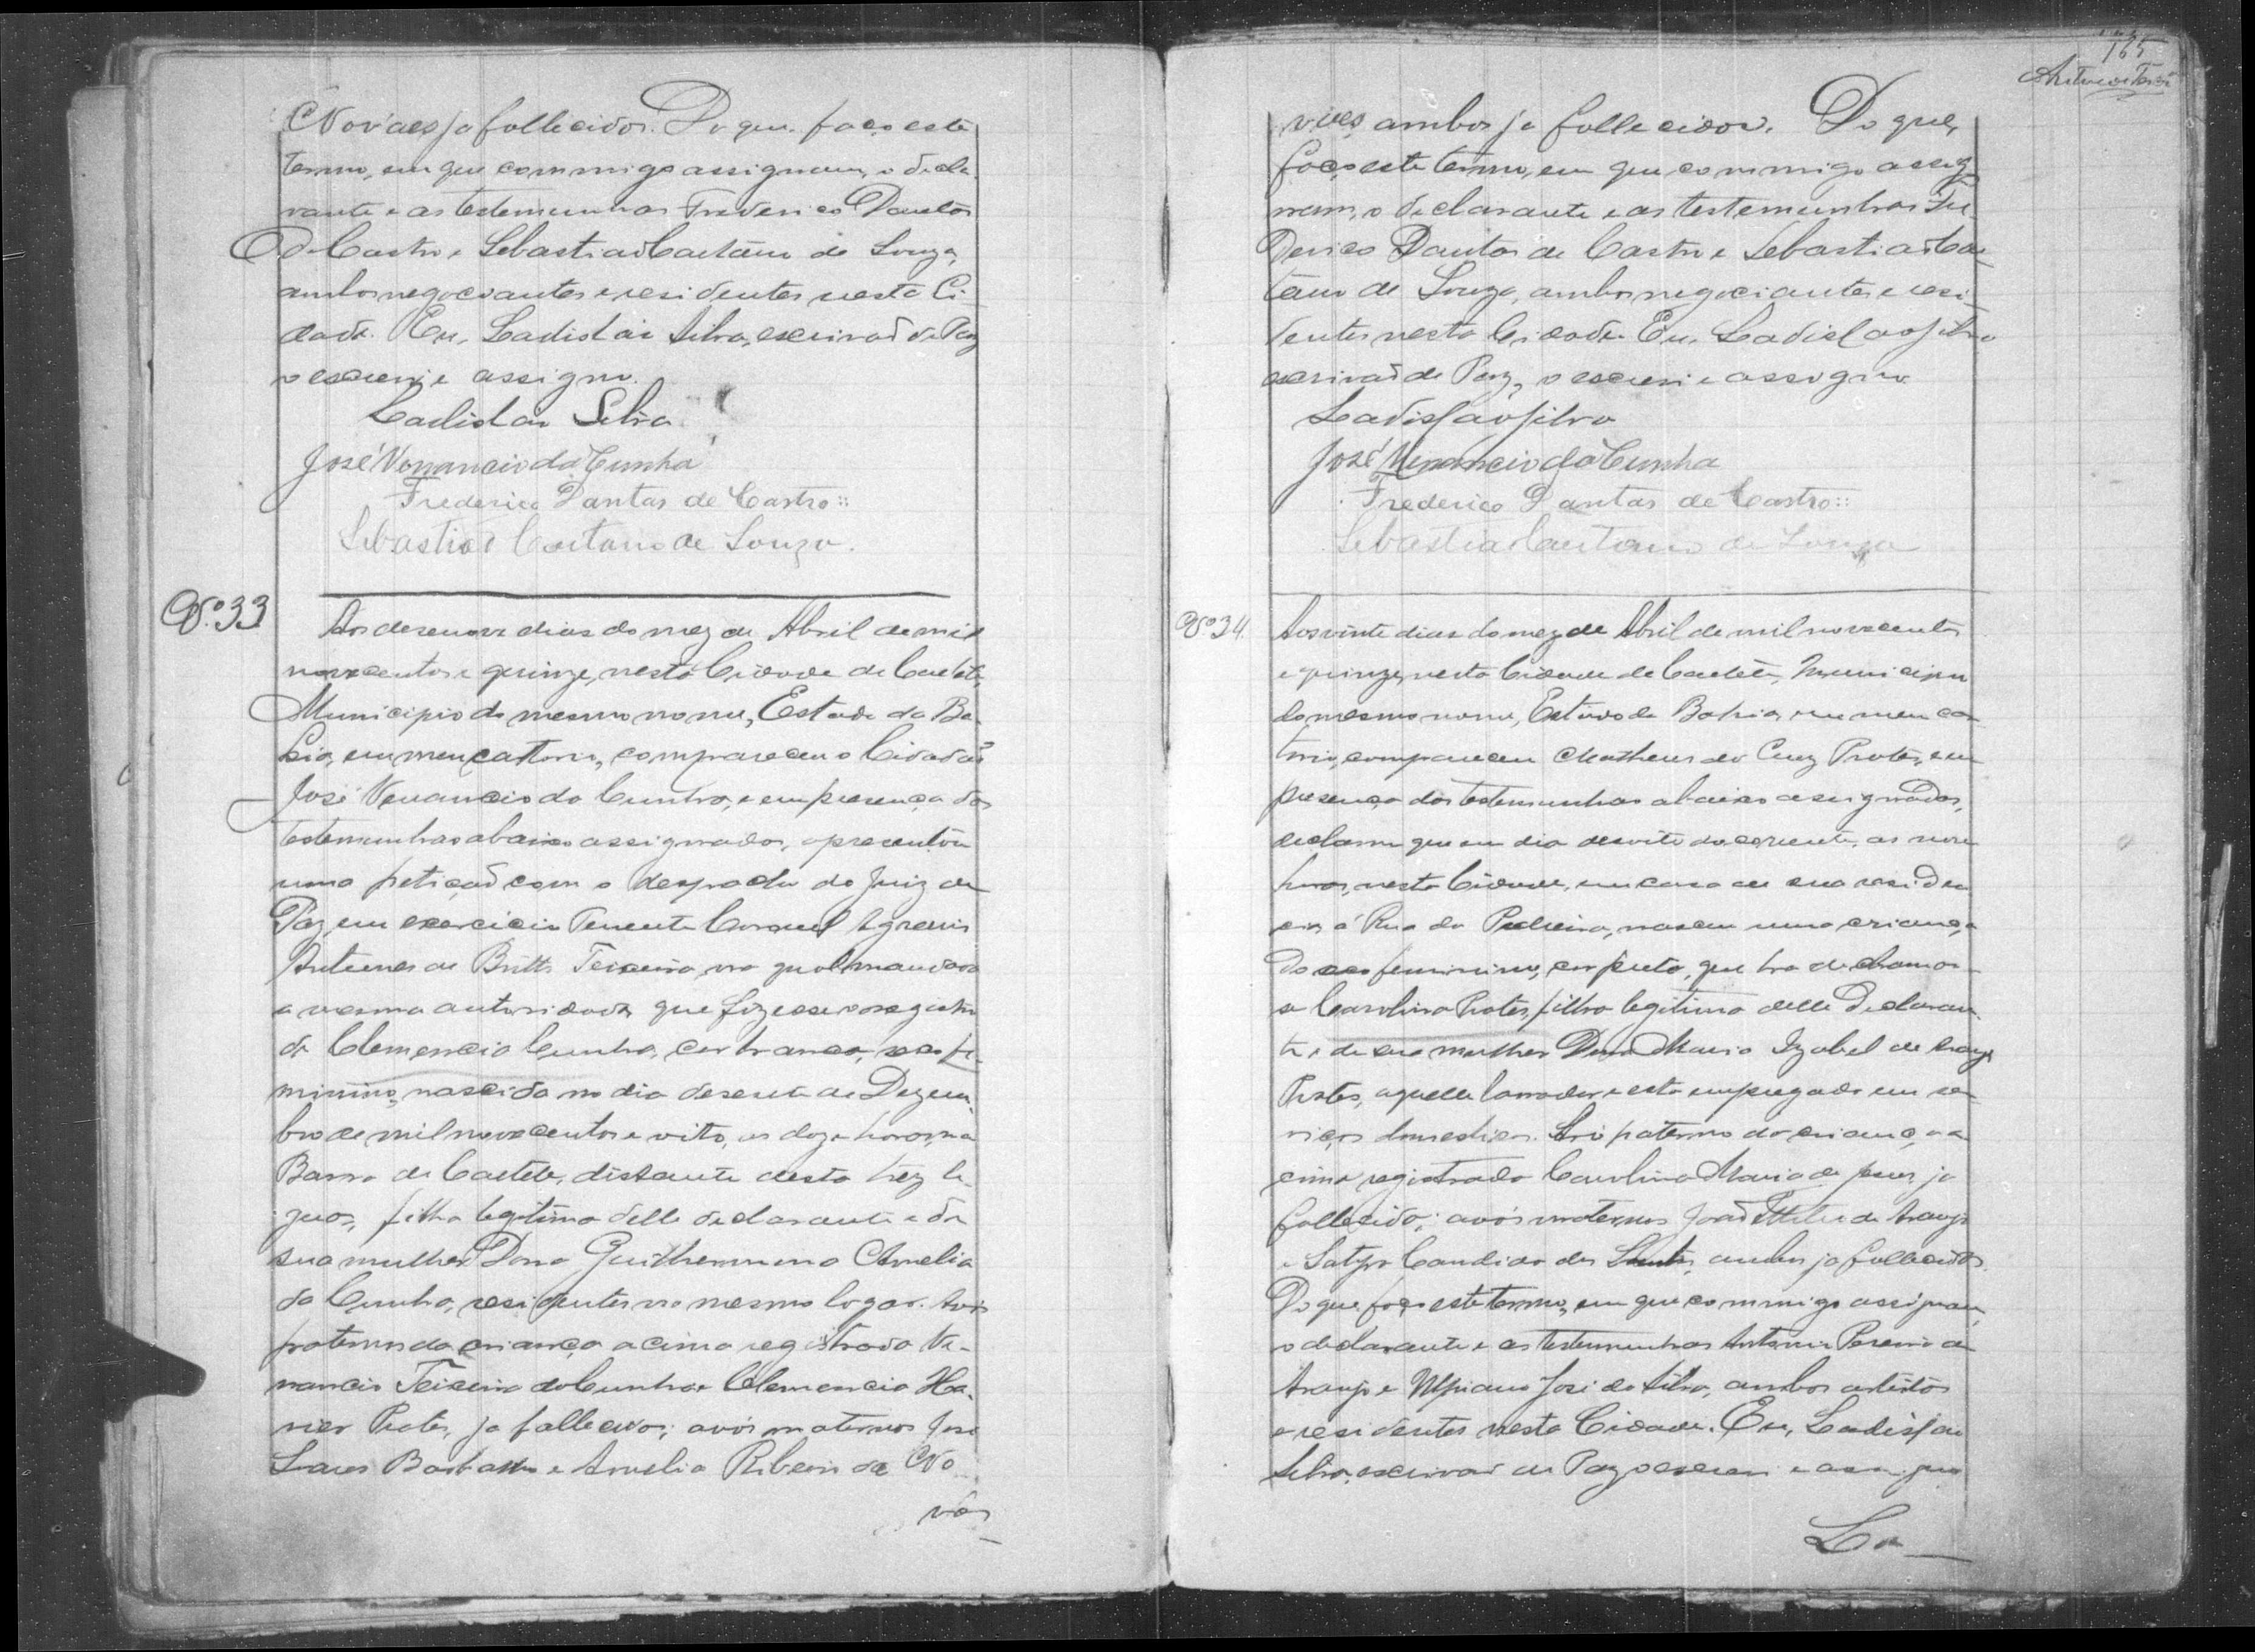 Novaes ja fallecidos. Do que faço este
termo, em que commigo assignam, o decla-
rante e as testemunhas Frederico Dantas
de Castro e Sebastião Caetano de Souza,
ambos negociantes e residentes nesta Ci-
dade. Eu, Ladislão Silva, escrivão de Paz
o escrevi e assigno.
Ladislão Silva
José Venancio da Cunha
Frederico Dantas de Castro::
Sebastião Caetano de Souza.
Nº 33
Aos desenove dias do mez de Abril de mil
novecentos e quinze, nesta Cidade de Caeteté,
Municipio do mesmo nome, Estado da Ba-
hia, em meu cartorio, compareceu o Cidadão
José Venancio da Cunha, e em presença das
testemunhas abaixo assignadas, apresentou
uma petição com o despacho do Juiz de
Paz em exercicio Tenente Coronel
Antunes de Britto Teixeira, na qual mandava
a mesma autoridade que fizesse o registro
de Clemencia Cunha, cor branca, sexo fe-
minino, nascida no dia desesete de Dezem-
bro de mil novecentos e oito, as doze horas, na
Barra de Caeteté, distante desta trez le-
guas, filha legitima delle declarante e de
sua mulher Dona Guilhermina Amelia
da Cunha, residentes no mesmo logar. Avós
paternos da criança acima registrada Ve-
nancio Teixeira da Cunha e Clemencia Xa-
vier Prates, ja fallecidos; avós maternos José
Soares Barbosa e Amelia Ribeiro de No
vaes
165
vaes ambos ja fallecidos. Do que,
faço este termo, em que commigo assig-
nam, o declarante e as testemunhas Fre-
derico Dantas de Castro e Sebastião Cae-
tano de Souza, ambos negociantes e resi-
dentes nesta Cidade. Eu, Ladislão Silva
escrivão de Paz, o escrevi e assigno
Ladislão Silva
José Venancio da Cunha
Frederico Dantas de Castro::
Sebastião Caetano de Souza
Nº 34.
Aos vinte dias do mez de Abril de mil novecentos
e quinze, nesta Cidade de Caeteté, Municipio
do mesmo nome, Estado da Bahia, em meu car-
torio, compareceu Matheus da Cruz Prates, e em
presença das testemunhas abaixo assignadas,
declarou que em dia desoito do corrente, as nove
horas, nesta Cidade, em casa de sua residen-
cia á Rua da Pedreira, nasceu uma criança
do sexo feminino, cor preta, que ha de chamar-
se Carolina Prates, filha legitima delle declaran-
te e de sua mulher Dona Maria Izabel de Araujo
Prates, aquelle lavrador e esta empregada em ser-
viços domesticos. Avó paterna da criança a
cima registrada Carolina Maria de Jesus, ja
fallecida; avós maternos João de Araujo
e Satyra Candida dos Santos, ambos ja fallecidos.
Do que faço este termo, em que commigo assignam,
o declarante e as testemunhas Antonio Pereira de
Araujo e Ulpiano José da Silva, ambos artistas
e residentes nesta Cidade. Eu, Ladislão
Silva, escrivão de Paz o escrevi e assigno
La